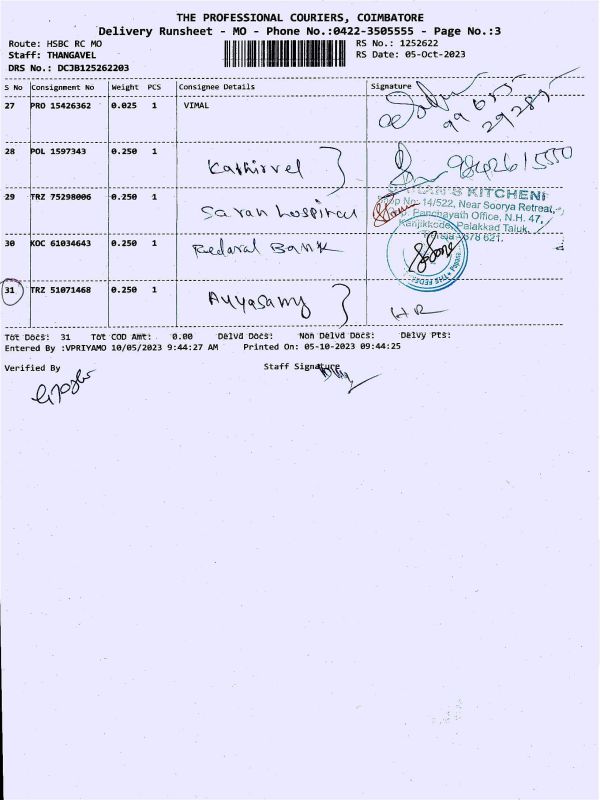 THE PROFESSIONAL COURIERS, COIMBATORE
Delivery Runsheet - MO - Phone No.:0422-3505555 - Page No.:3
Route: HSBC RC MO RS No.: 1252622
Staff: THANGAVEL RS Date: 05-Oct-2023
DRS No.: DCJB125262203
S No Consignment No Weight PCS Consignee Details Signature
27 PRO 15426362 0.025 1 VIMAL
99655
29289
28 POL 1597343 0.250 1 Kathirvel 9842615550
29 TRZ 75298006 0.250 1 Saran hospital
KITCHEN
Shop No: 14/522, Near Soorya Retreat,
Panchayath Office, N.H. 47,
Kanjikkode, Palakkad Taluk,
678 621.
30 KOC 61034643 0.250 1 Bank
31 TRZ 51071468 0.250 1 Ayyasamy HR
Tot Docs: 31 Tot COD Amt: 0.00 Delvd Docs: Non Delvd Docs: Delvy Pts:
Entered By :VPRIYAMO 10/05/2023 9:44:27 AM Printed On: 05-10-2023 09:44:25
Verified By Staff Signature